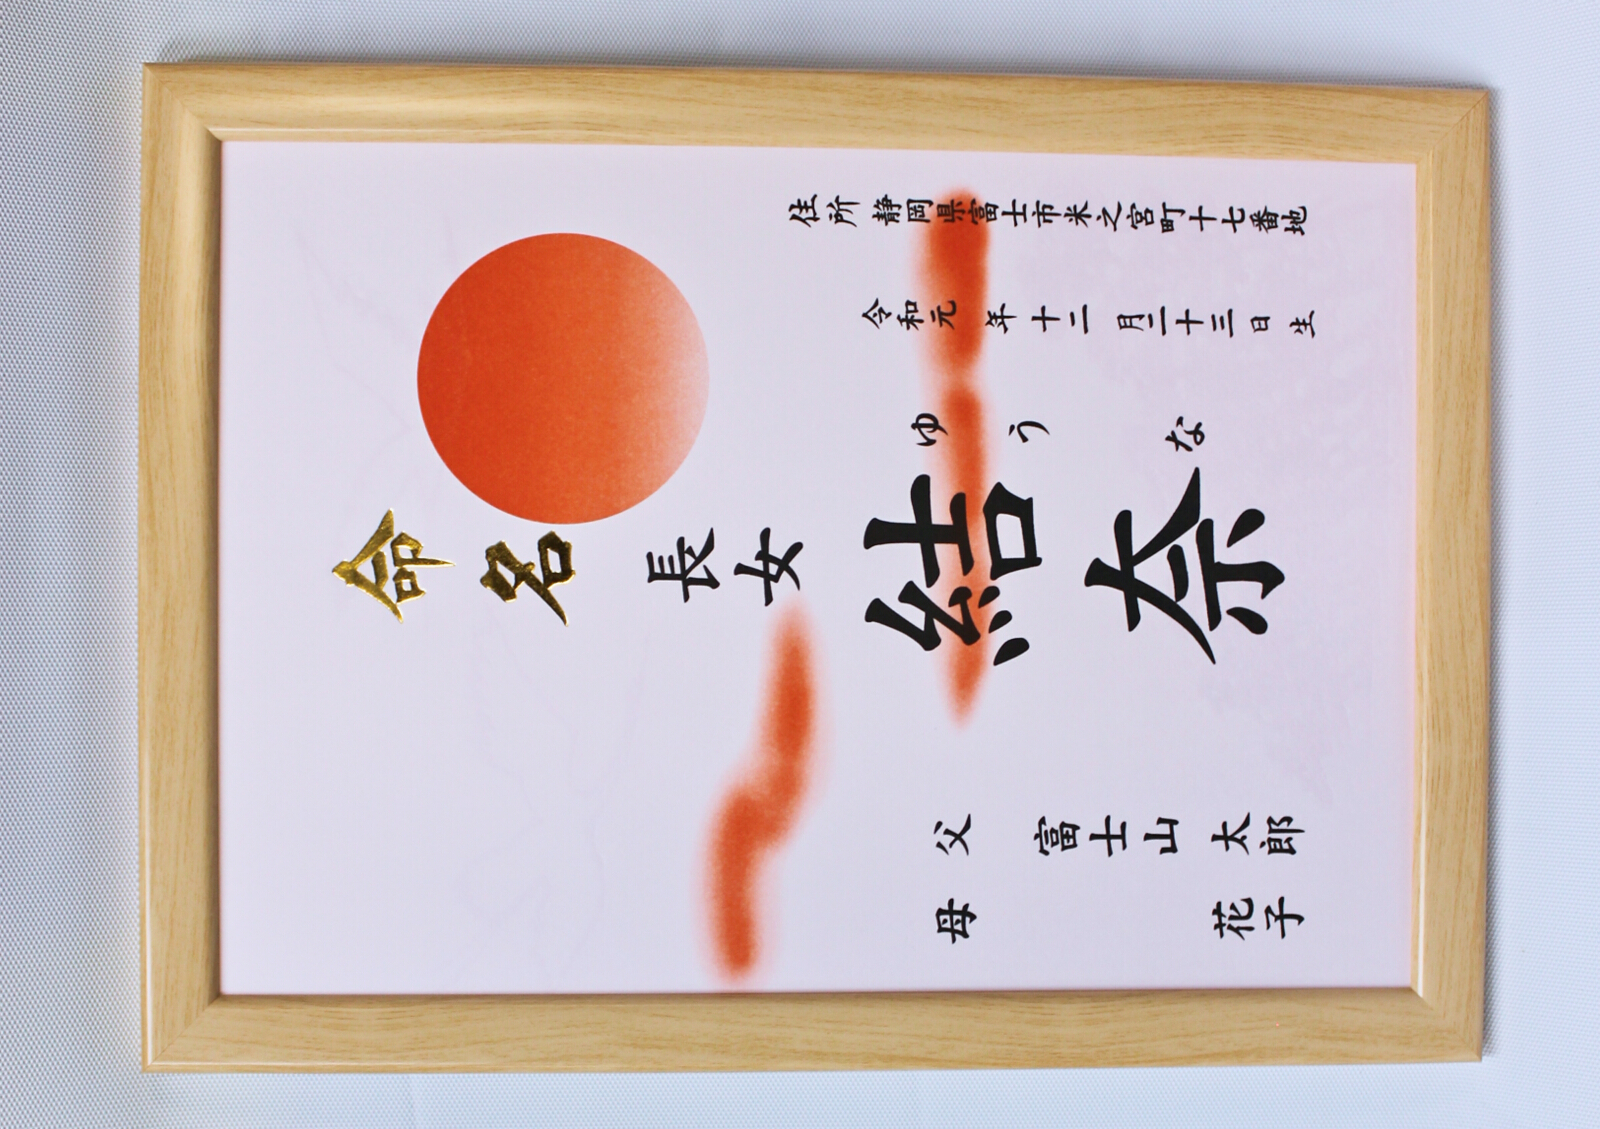 住所 静岡県富士市米之宮町十七番地
令和元年十二月二十三日生
ゆうな
命名 長女 結奈
父 富士山 太郎
母 花子